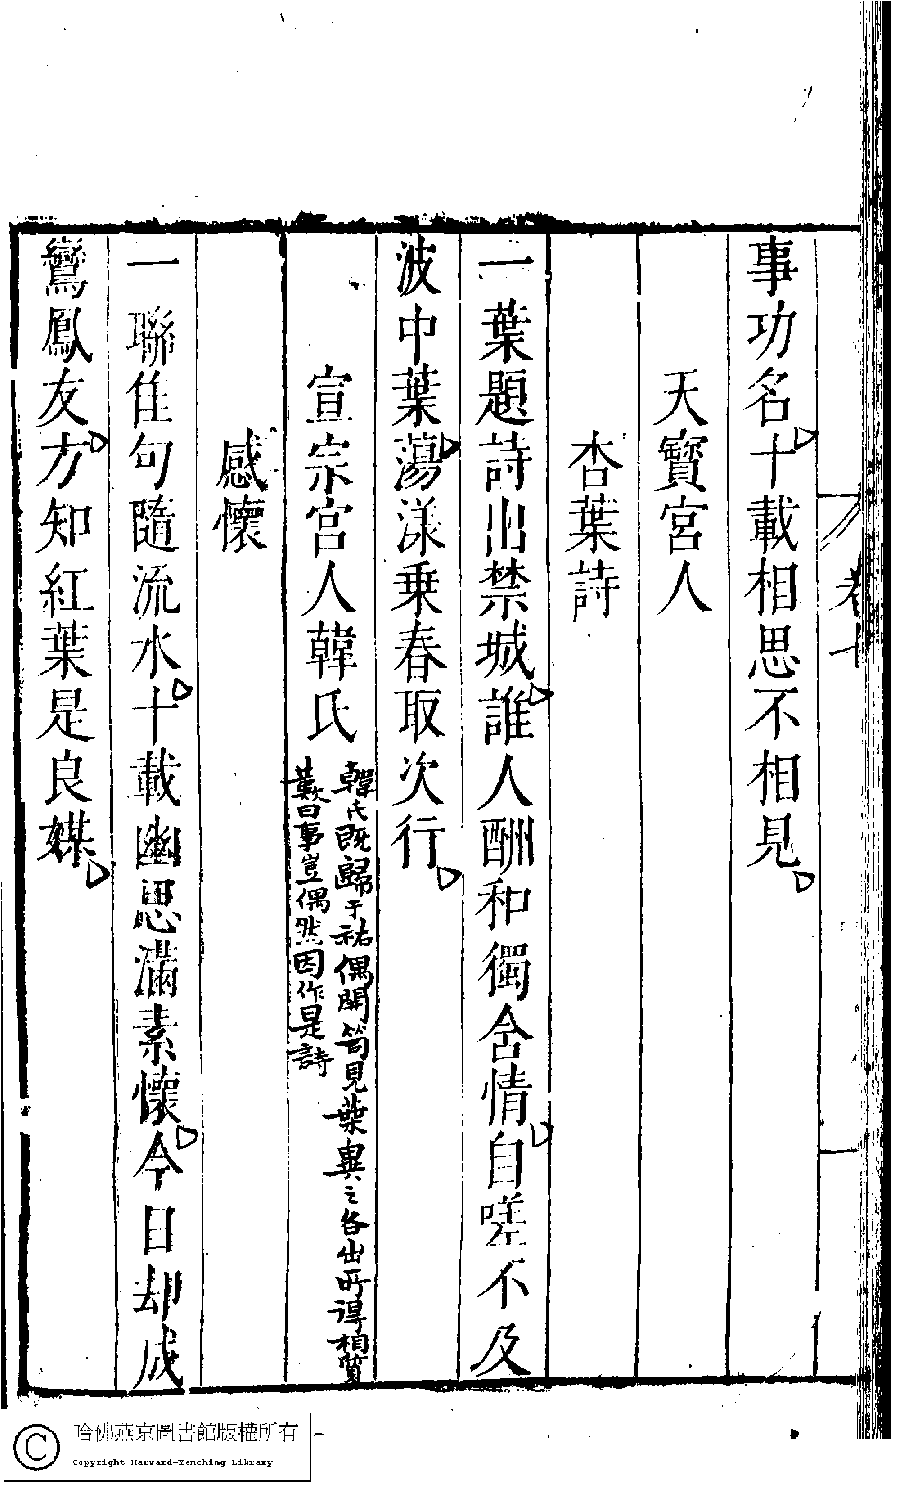 事功名十載相思不相見
天寶宮人
杏葉詩
一葉題詩出禁城誰人酬和獨含情自嗟不及
波中葉蕩漾乗春取次行
宣宗宮人韓氏
韓氏既歸于祐偶開笥見葉異之各出所得相質
歎曰事豈偶然因作是詩
感懷
一聯佳句隨流水十載幽思滿素懷今日却成
鸞鳳友方知紅葉是良媒
哈佛燕京圖書館版權所有
Copyright Harvard-Yenching Library